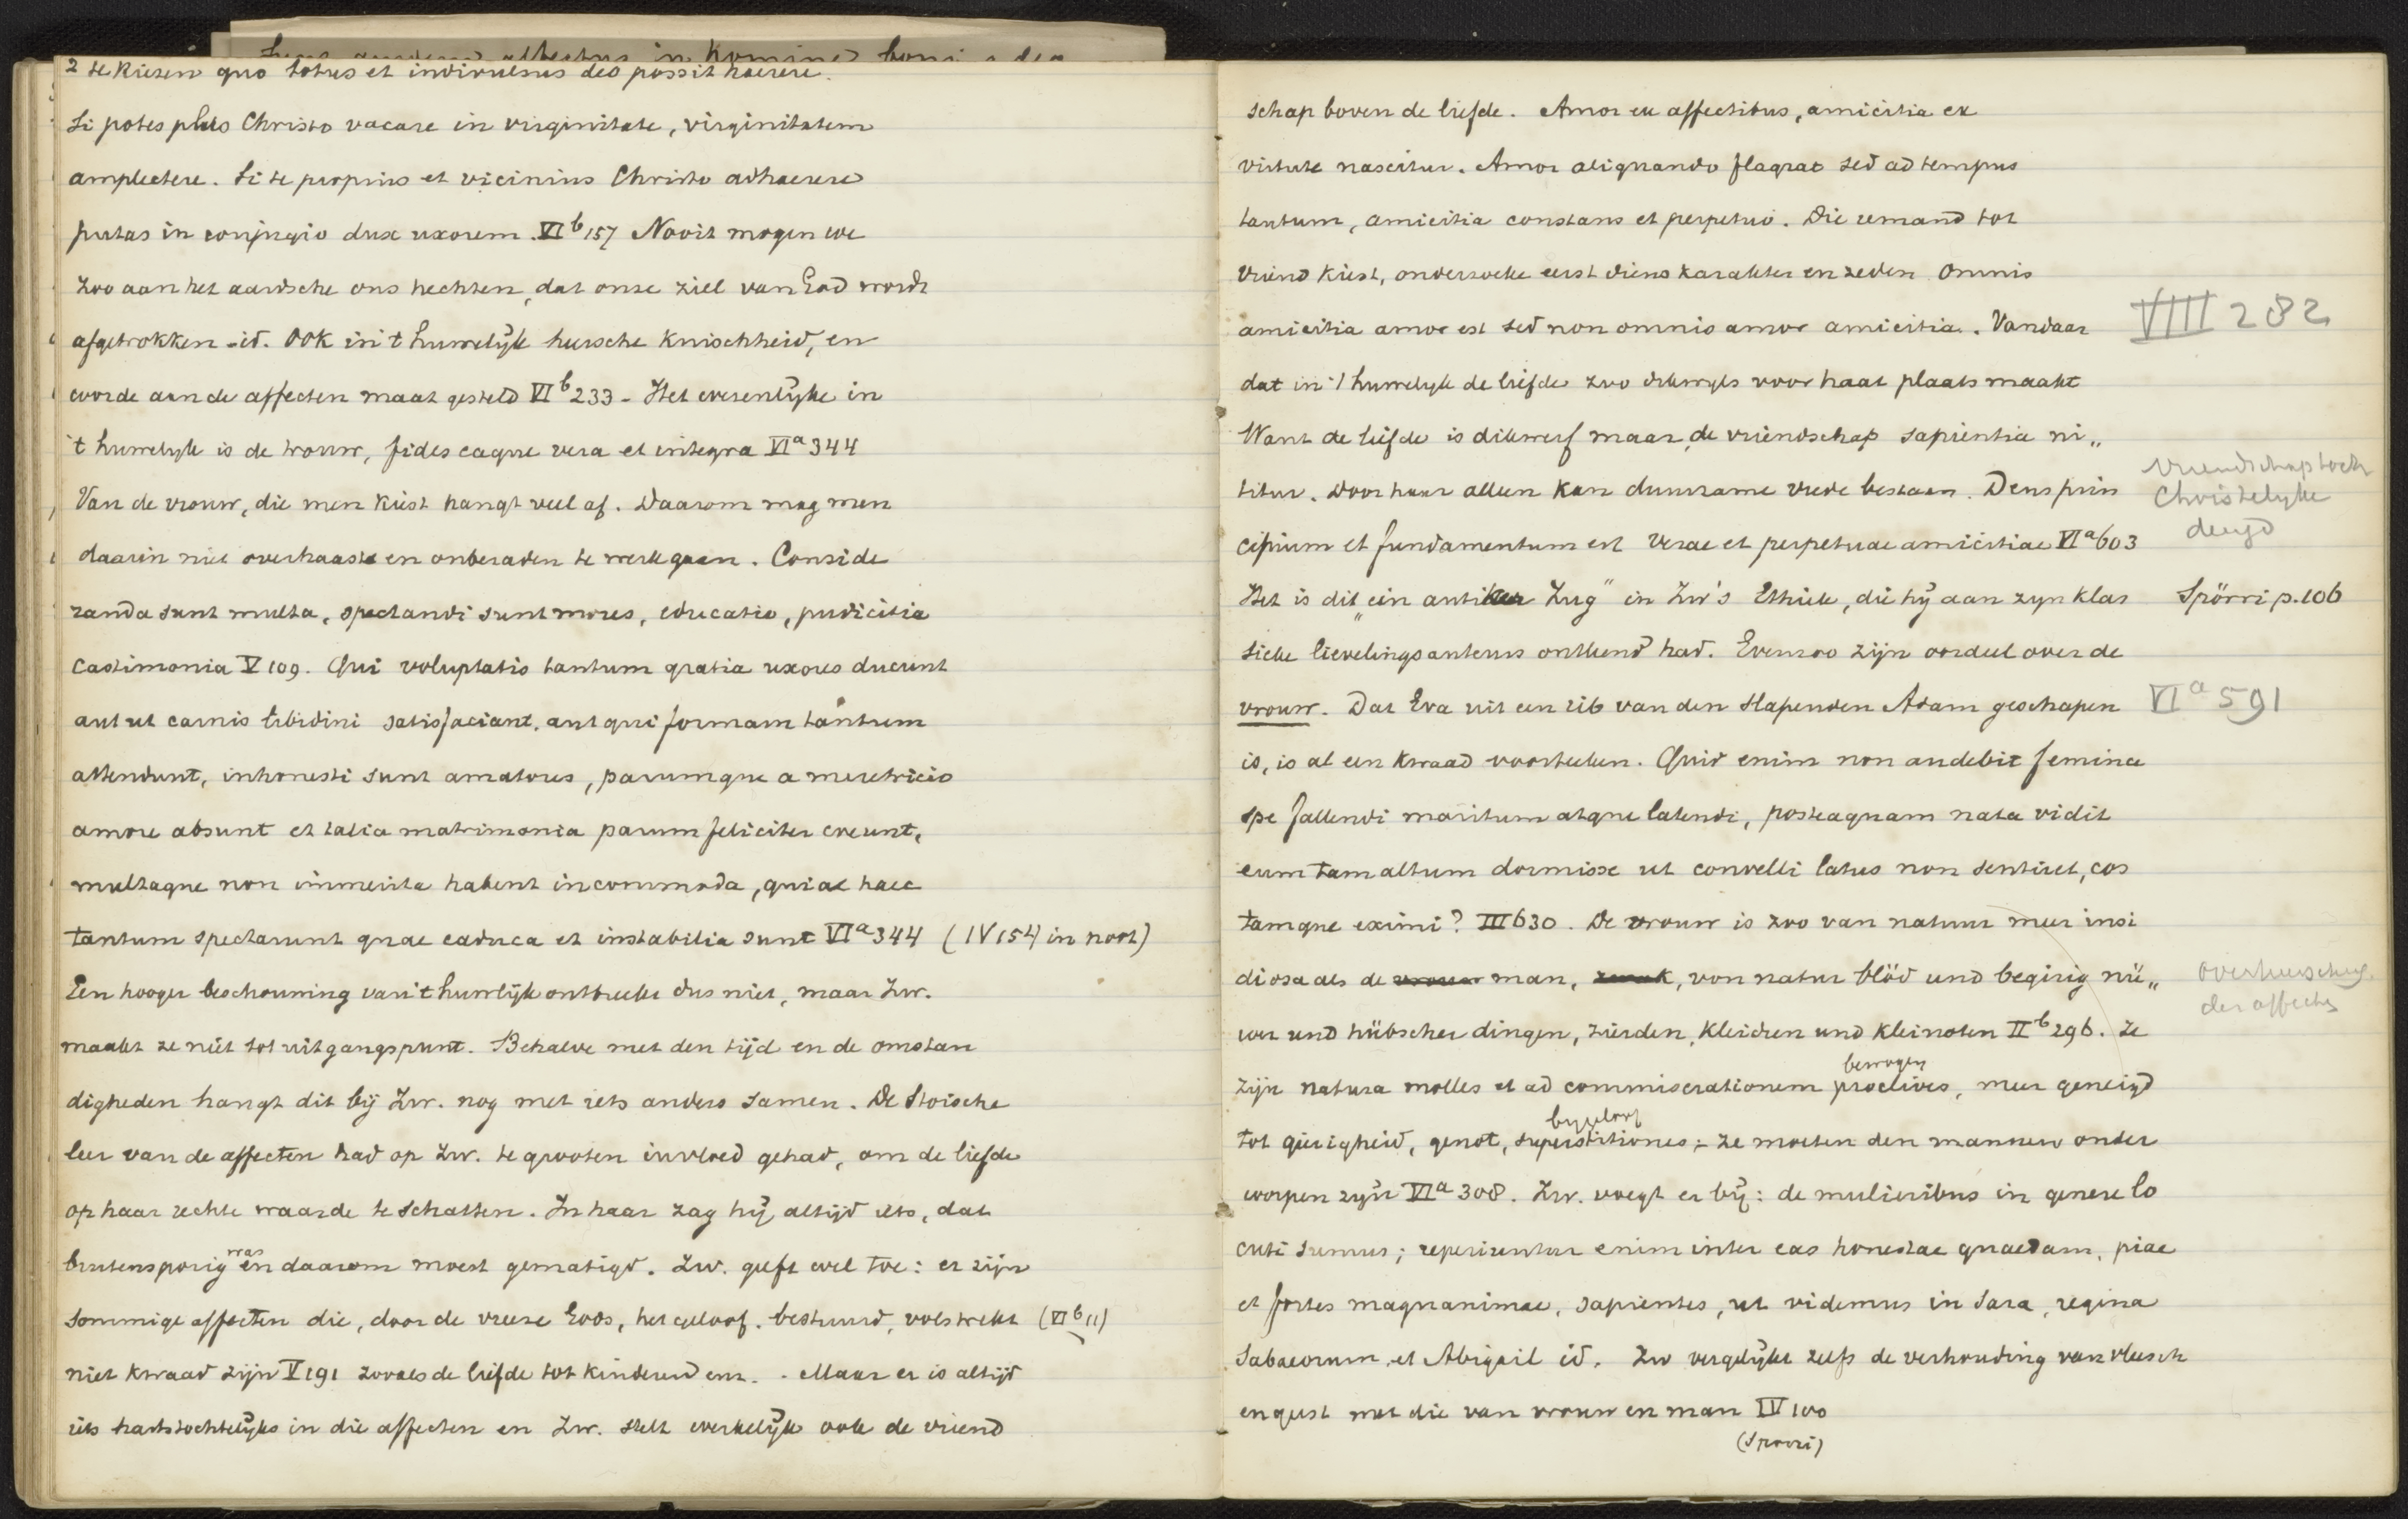 2 te kiezen quo totus et indivulsus deo possit haerere.
Si potes plus Christo vacare in virginitate, virginitatem
amplectere. Si te propius et vicinius Christo adhaerere
putas in conjugio duc uxorem. VIb 157 Nooit mogen we
zoo aan het aardsche ons hechten, dat onze ziel van God wordt
afgetrokken - id. OOK in 't huwelijk heersche kuischheid, en
worde aan de affecten maat gesteld VIb 233 - Het wezenlijke in
't huwelijk is de trouw, fides eaque vera et integra VIa 344
Van de vrouw, die men kiest hangt veel af. Daarom mag men
daarin niet overhaast en onberaden te werk gaan. Conside
randa sunt multa, spectandi sunt mores, educatio, pudicitia
castimonia V 109. Qui voluptatis tantum gratia uxores ducunt
aut ut carnis libidini satisfaciant, aut qui formam tantum
attendunt, inhonesti sunt amatores, parumque a meretricio
amore absunt et talia matrimonia parum feliciter eveunt,
multaque non immerita habent incommoda, quia haec
tantum spectarunt quae caduca et instabilia sunt VIa 344 (IV 154 in noot)
Een hooger beschouwing van 't huwlijk ontbreekt dus niet, maar Zw.
maakt ze niet tot uitgangspunt. Behalve met den tijd en de omstan
digheden hangt dit bij Zw. nog met iets anders samen. De Stoische
leer van de affecten had op Zw. te grooten invloed gehad, om de liefde
op haar rechte waarde te schatten. In haar zag hij altijd iets, dat
buitensporig was en daarom moest gematigd. Zw. geeft wel toe: er zijn
sommige affecten die, door de vreeze Gods, het geloof. bestuurd, volstrekt (VIb 11)
niet kwaad zijn V 191 zooals de liefde tot kinderen enz. . Maar er is altijd
iets hartstochtelijks in die affecten en Zw. stelt werkelijk ook de vriend
schap boven de liefde. Amor ex affectibus, amicitia ex
virtute nascitur. Amor aliquando flagrat sed ad tempus
tantum, amicitia constans et perpetuo. Die iemand tot
vriend kiest, onderzoeke eerst diens karakter en zeden. Omnis
amicitia amor est sed non omnis amor amicitia. Vandaar
VIII 282
dat in 't huwelijk de liefde zoo dikwijls voor haat plaats maakt
Want de liefde is dikwerf maar de vriendschap sapientia ni„
titur. Door haar alleen kan duurzame vrede bestaan. Deus prin
vriendschap toch
Christelijke
deugd
cipium et fundamentum est verae et perpetuae amicitiae VIa 603
Het is dit „ein antiker Zug" in Zw's Ethiek, die hij aan zijn klas
Spörri p. 106
sieke lievelingsauteurs ontleend had. Evenzoo zijn oordeel over de
vrouw. Dat Eva uit een rib van den slapenden Adam geschapen
VIa 591
is, is al een kwaad voorteeken. Quid enim non audebit femina
spe fallendi maritum atque latendi, posteaquam nata vidit
eum tam altum dormisse ut convelli latus non sentiret, cos
tamque eximi? III 630. De vrouw is zoo van natuur meer insi
diosa als de vrouw man, zwak, von natur blöd und begirig nü„
overheersching
der affecten
wer und hübscher dingen, zierden, kleidren und kleinoten IIb 296. Ze
bewogen
zijn natura molles et ad commiserationem proclives, meer geneigd
bijgeloof
tot gierigheid, genot, superstitiones; - ze moeten den mannen onder
worpen zijn VIa 308. Zw. voegt er bij: de mulieribus in genere lo
cuti sumus; reperiuntur enim inter eas honestae quaedam, piae
et fortes magnanimae, sapientes, ut videmus in Sara, regina
Sabaeorum, et Abigail id. Zw vergelijkt zelfs de verhouding van vleesch
en geest met die van vrouw en man IV 100
(Spörri)